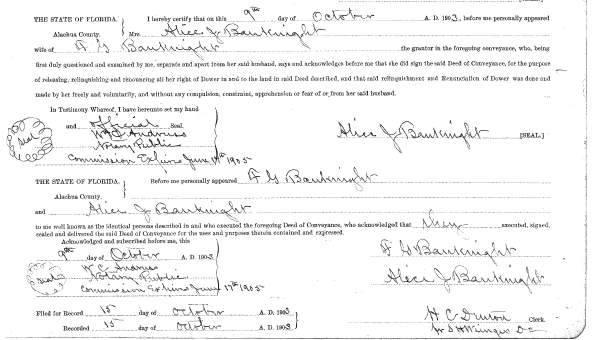 THE STATE OF FLORIDA. I hereby certify that on this 9th day of October A. D. 1903, before me personally appeared
Alachua County. Mrs. Alice J Bauknight
wife of F G Bauknight the grantor in the foregoing conveyance, who, being
first duly questioned and examined by me, separate and apart from her said husband, says and acknowledge before me that she did sign the said Deed of Conveyance, for the purpose
of releasing, relinquishing and renouncing all her right of Dower in and to the land in said Deed described, and that said relinquishment and Renunciation of Dower was done and
made by her freely and voluntarily, and without any compulsion, constraint, apprehension or fear of or from her said husband.
In Testimony Whereof, I have hereunto set my hand
and official Seal
Seal
W. C. Andruss
Notary Public
Commission Expires June 17th 1905
Alice J Bauknight [SEAL.]
THE STATE OF FLORIDA. Before me personally appeared F G Bauknight
Alachua County.
and Alice J Bauknight
to me well known as the identical persons described in and who executed the foregoing Deed of Conveyance, who acknowledged that they executed, signed,
sealed and delivered the said Deed of Conveyance for the uses and purposes therein contained and expressed.
Acknowledged and subscribed before me, this
9th day of October A. D. 1903
Seal
W. C. Andruss
Notary Public
Commission Expires June 17th 1905
F G Bauknight
Alice J Bauknight
Filed for Record 15 day of October A. D. 1903
Recorded 15 day of October A. D. 1903
H C Clerk.
D C